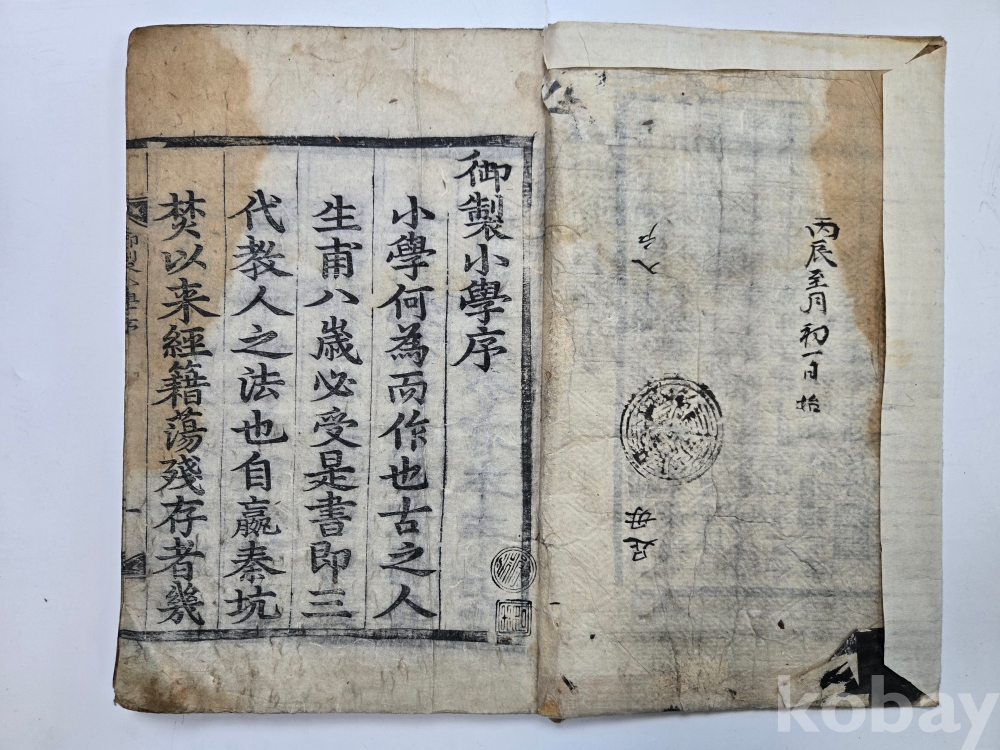 丙辰至月初一日始
御製小學序
小學何為而作也古之人
生甫八歳必受是書即三
代教人之法也自嬴秦坑
焚以来經籍蕩殘存者幾
御製小學序
kobay